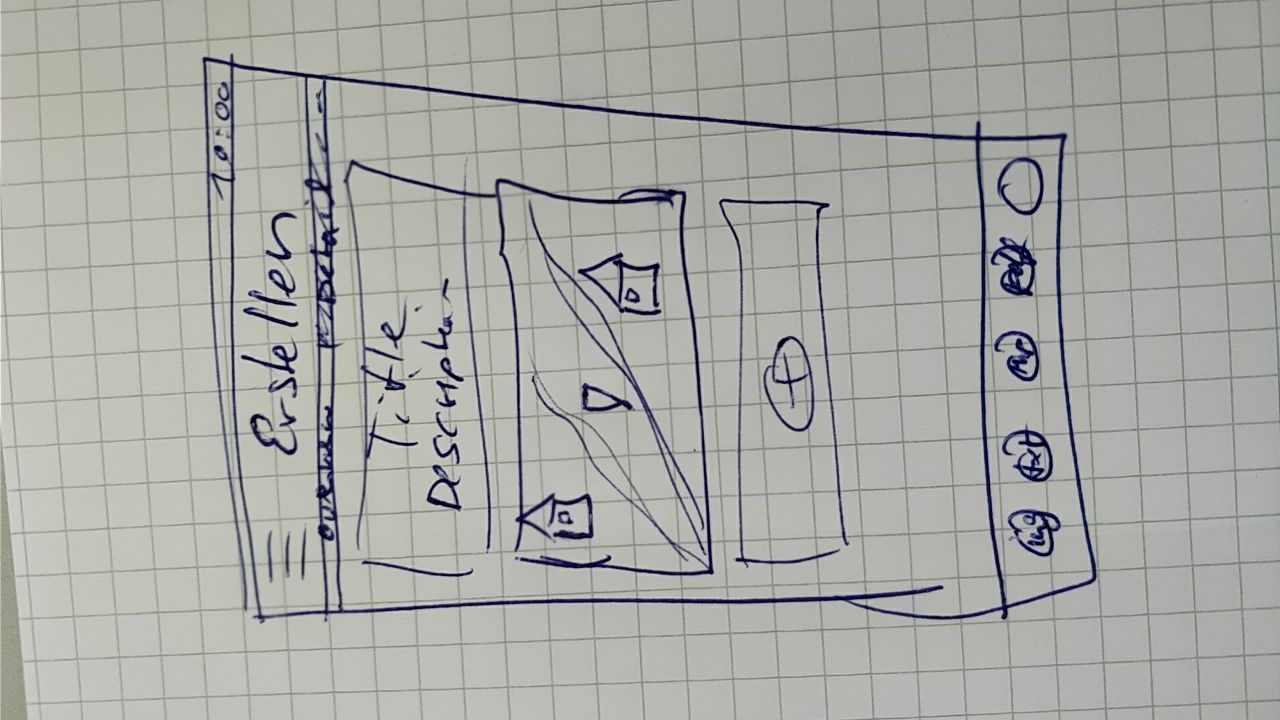 10:00
Erstellen
Detail
Title
Description
img txt Map